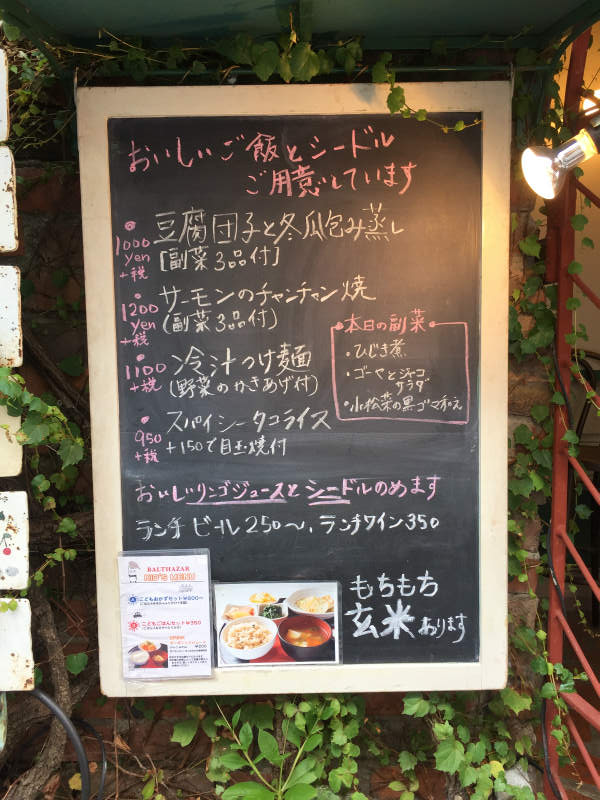 おいしいご飯とシードル
ご用意しています
豆腐団子と冬瓜包み蒸し
1000 yen +税
[副菜3品付]
サーモンのチャンチャン焼
1200 yen +税
(副菜3品付)
冷汁つけ麺
1100 +税
(野菜のかきあげ付)
スパイシータコライス
950 +税
+150で目玉焼付
本日の副菜
・ひじき煮
・ゴーヤとジャコ
サラダ
・小松菜の黒ゴマ和え
おいしいリンゴジュースとシードルのめます
ランチビール250〜、ランチワイン350
もちもち
玄米あります
BALTHAZAR
KID'S MENU
こどもおかずセット¥600〜
こどもごはんセット¥350